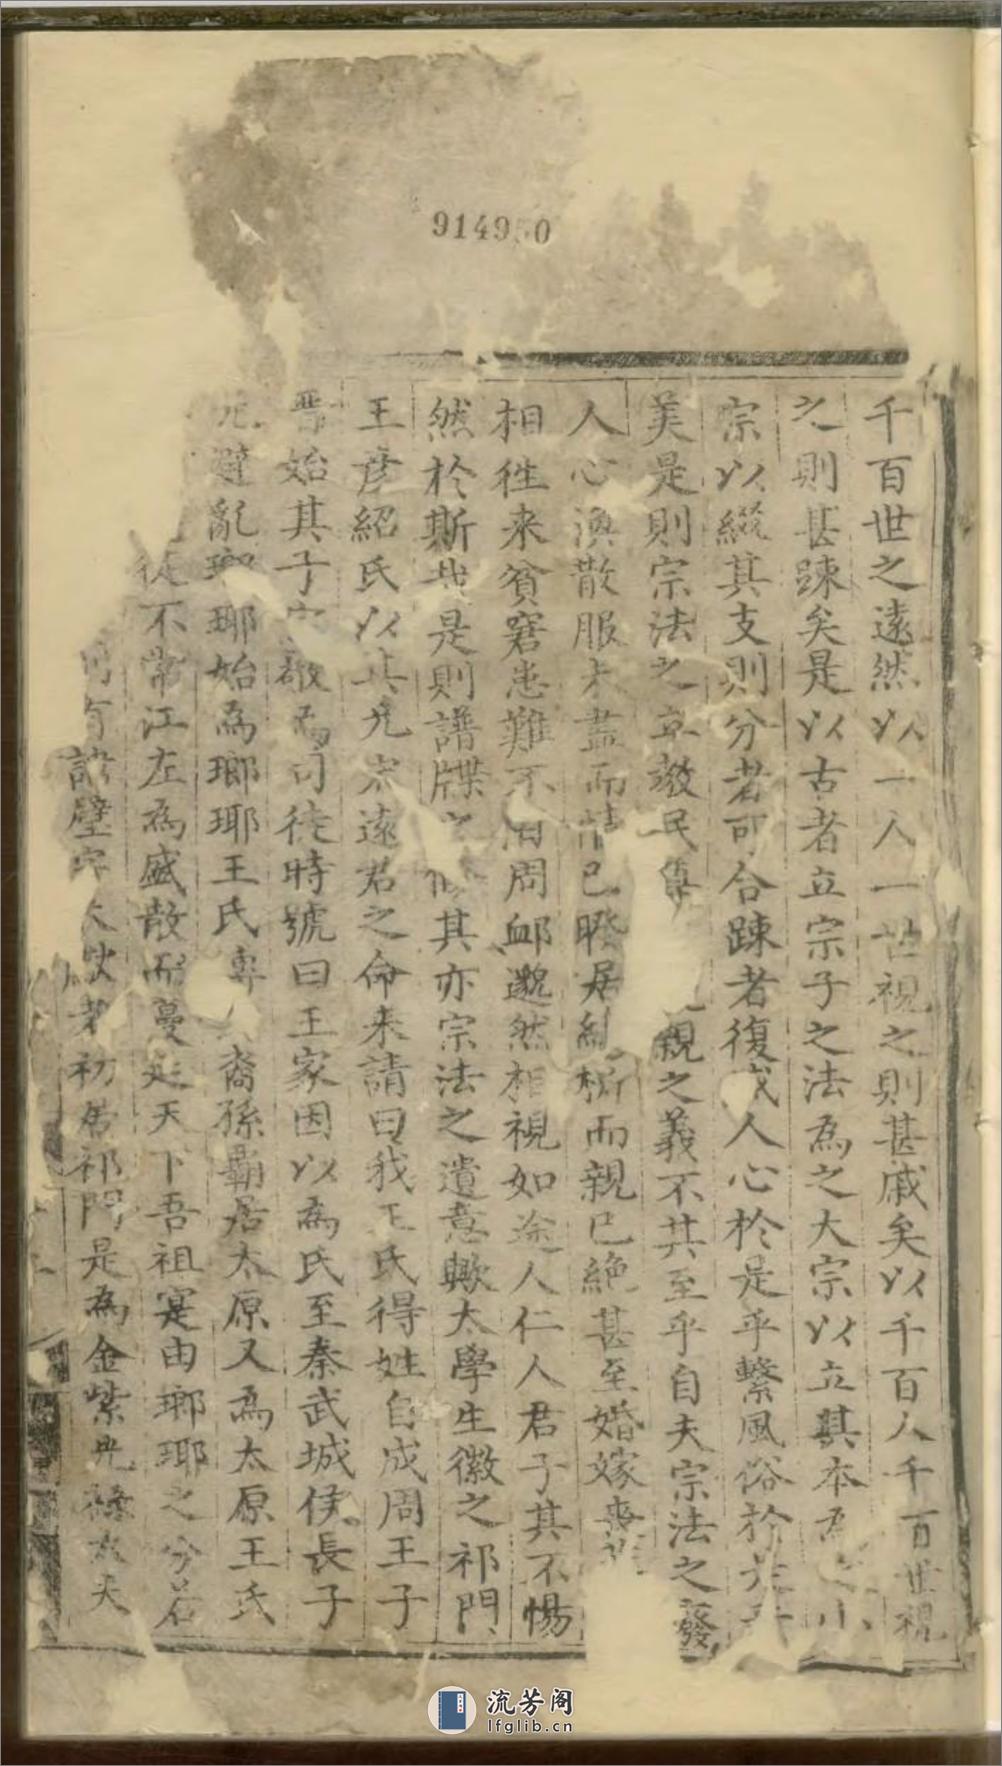 914950
千百世之遠然以一人一世視之則甚戚矣以千百人千百世視
之則甚踈矣是以古者立宗子之法為之大宗以立其本為之小
宗以綴其支則分者可合踈者復戚人心於是乎繫風俗於是乎
美是則宗法之立誠民尊親之義不其至乎自夫宗法之廢
人心渙散服未盡而情已暌居纔析而親已絶甚至婚嫁喪
相徃来貧窘患難不相周邺邈然相視如途人仁人君子其不惕
然於斯哉是則譜牒之修其亦宗法之遺意歟太學生徽之祁門
王彦紹氏以其兄宗遠君之命来請曰我王氏得姓自成周王子
晋始其子宗敬為司徒時號曰王家因以為氏至秦武城侯長子
元避亂瑯琊始為瑯琊王氏裔孫霸居太原又為太原王氏
從不常江左為盛散而蔓延天下吾祖寔由瑯琊之分若
諱璧字大獻者初居祁門是為金紫光祿大夫
流芳阁
lfglib.cn